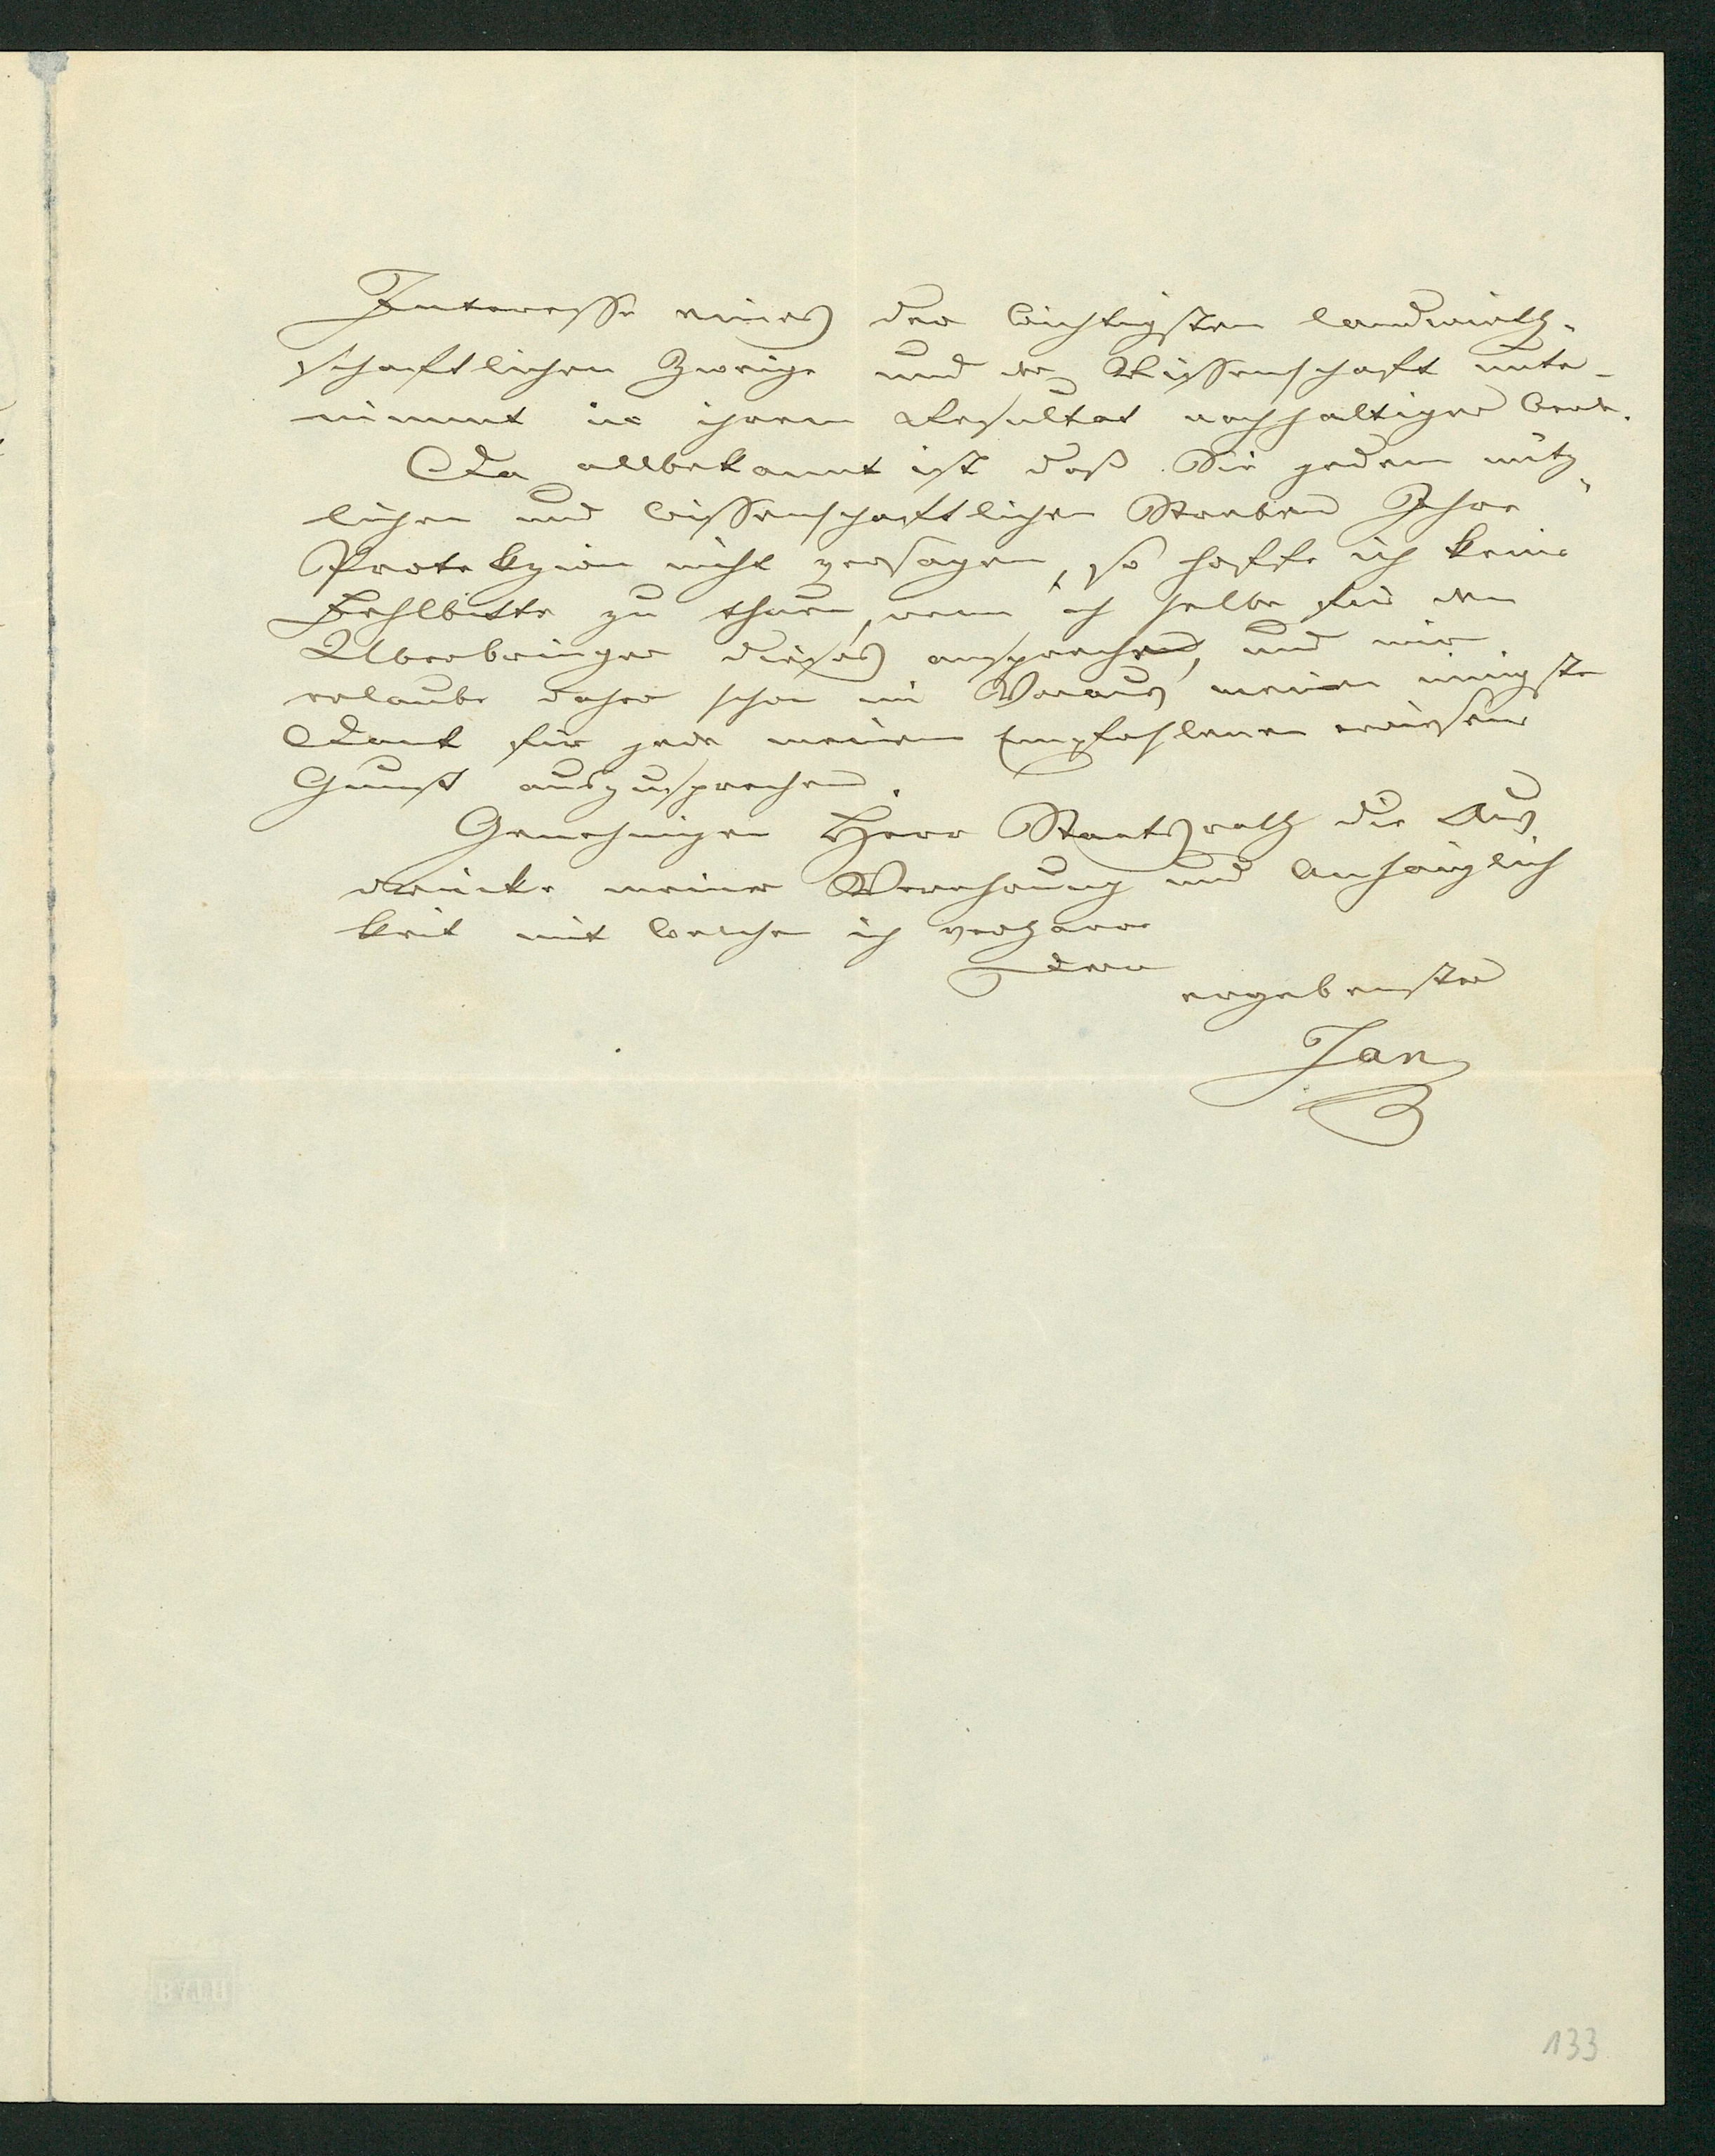 Interesse eines der wichtigsten landwirth-
schaftlichen Zweige und der Wissenschaft unter-
nimmt in ihrem Resultat nachhaltiger werde.
Da allbekannt ist daß Sie jedem nütz-
lichen und wissenschaftlichen Streben Ihre
Protekzion nicht versagen, so hoffe ich keine
Fehlbitte zu thuen, wenn ich selbe für den
Überbringer dieses ansprechend, und mir
erlaube daher schon im Voraus meinen innigsten
Dank für jede meinem Empfohlenen erwiesene
Gunst auszusprechen.
Genehmigen Herr Staatsrath die Aus-
drücke meiner Verehrung und Anhänglich
keit mit welcher ich verharre
Dero
ergebenster
Jan
133